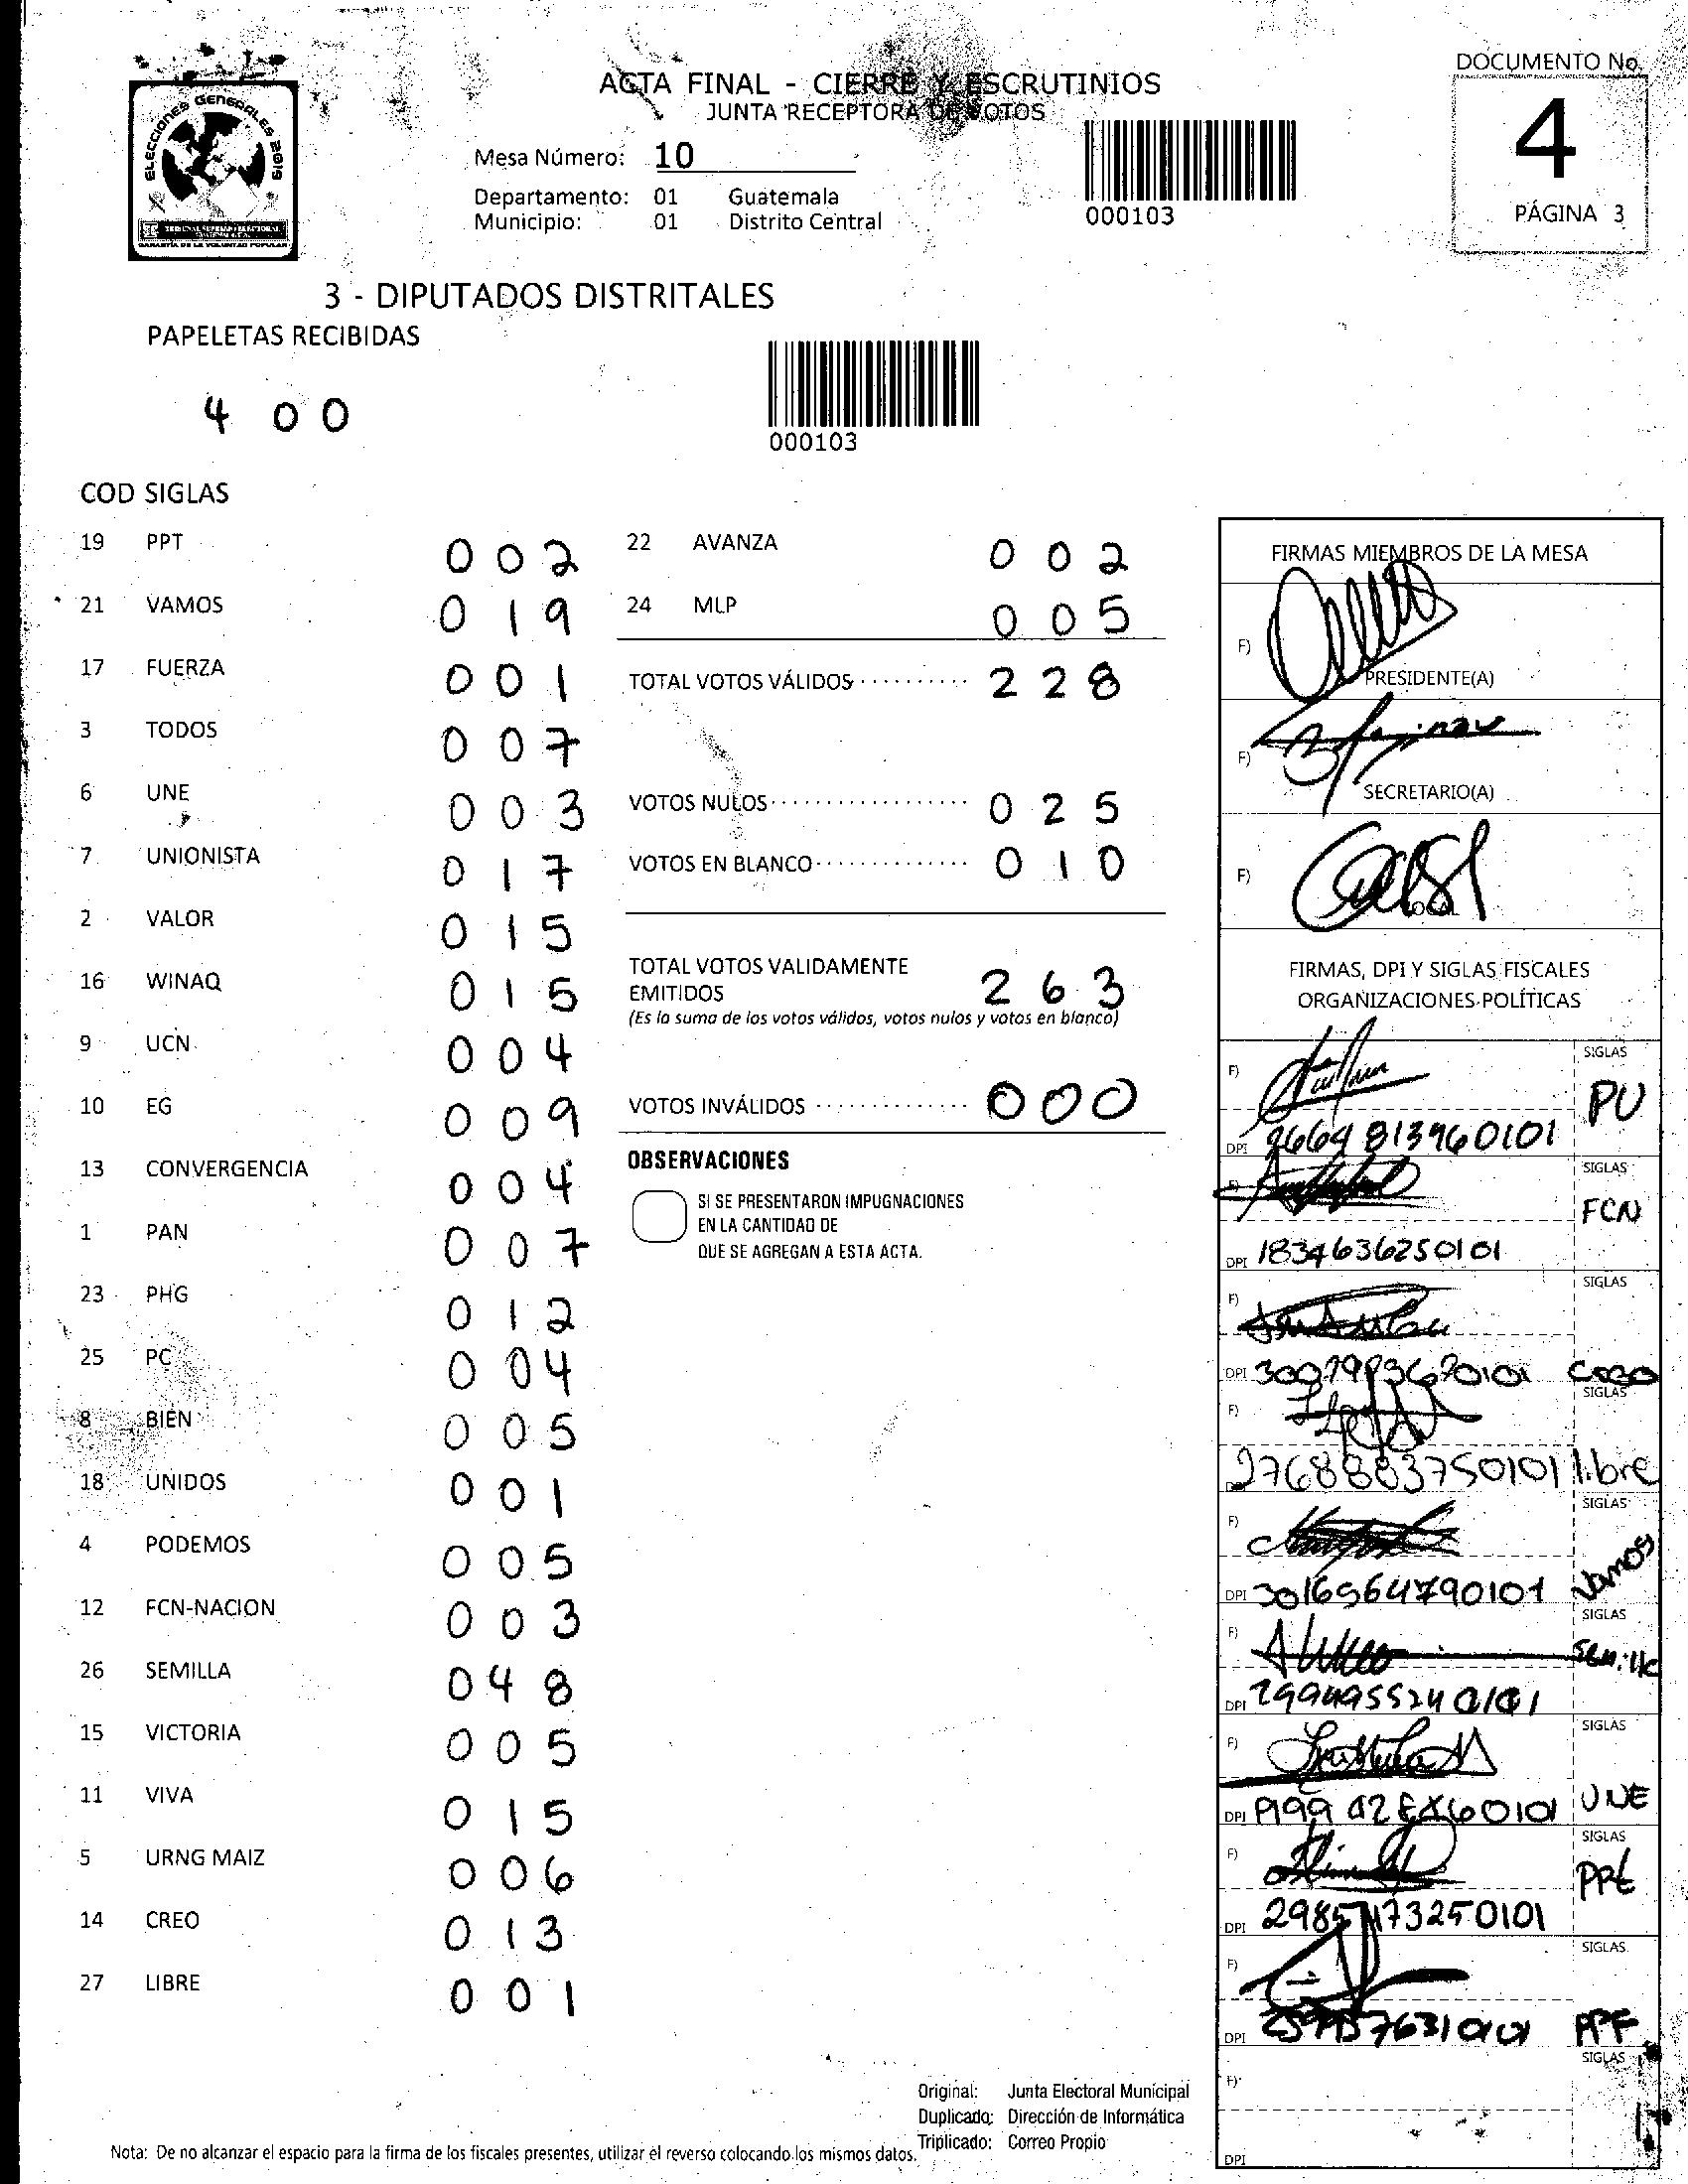 ELECCIONES GENERALES 2019
TRIBUNAL SUPREMO ELECTORAL
GARANTÍA DE LA VOLUNTAD POPULAR
ACTA FINAL - CIERRE Y ESCRUTINIOS
JUNTA RECEPTORA DE VOTOS
Mesa Número: 10
Departamento: 01 Guatemala
Municipio: 01 Distrito Central
000103
DOCUMENTO No.
4
PÁGINA 3
3 - DIPUTADOS DISTRITALES
PAPELETAS RECIBIDAS
4 0 0
000103
COD SIGLAS
19 PPT 0 0 2
21 VAMOS 0 1 9
17 FUERZA 0 0 1
3 TODOS 0 0 7
6 UNE 0 0 3
7 UNIONISTA 0 1 7
2 VALOR 0 1 5
16 WINAQ 0 1 5
9 UCN 0 0 4
10 EG 0 0 9
13 CONVERGENCIA 0 0 4
1 PAN 0 0 7
23 PHG 0 1 2
25 PC 0 0 4
8 BIEN 0 0 5
18 UNIDOS 0 0 1
4 PODEMOS 0 0 5
12 FCN-NACION 0 0 3
26 SEMILLA 0 4 8
15 VICTORIA 0 0 5
11 VIVA 0 1 5
5 URNG MAIZ 0 0 6
14 CREO 0 1 3
27 LIBRE 0 0 1
22 AVANZA 0 0 2
24 MLP 0 0 5
TOTAL VOTOS VÁLIDOS 2 2 8
VOTOS NULOS 0 2 5
VOTOS EN BLANCO 0 1 0
TOTAL VOTOS VALIDAMENTE
EMITIDOS 2 6 3
(Es la suma de los votos válidos, votos nulos y votos en blanco)
VOTOS INVÁLIDOS 0 0 0
OBSERVACIONES
SI SE PRESENTARON IMPUGNACIONES
EN LA CANTIDAD DE
QUE SE AGREGAN A ESTA ACTA.
FIRMAS MIEMBROS DE LA MESA
F)
PRESIDENTE(A)
F)
SECRETARIO(A)
F)
VOCAL
FIRMAS, DPI Y SIGLAS FISCALES
ORGANIZACIONES POLÍTICAS
F) SIGLAS
PU
DPI 2664 81396 0101
F) SIGLAS
FCN
DPI 1834636250101
F) SIGLAS
DPI CREO
F) SIGLAS
2768883750101 libre
F) SIGLAS
DPI 3016564790101 Vamos
F) SIGLAS
Semilla
DPI
F) SIGLAS
DPI UNE
F) SIGLAS
DPI
F) SIGLAS
DPI
F) SIGLAS
DPI
Original: Junta Electoral Municipal
Duplicado: Dirección de Informática
Triplicado: Correo Propio
Nota: De no alcanzar el espacio para la firma de los fiscales presentes, utilizar el reverso colocando los mismos datos.